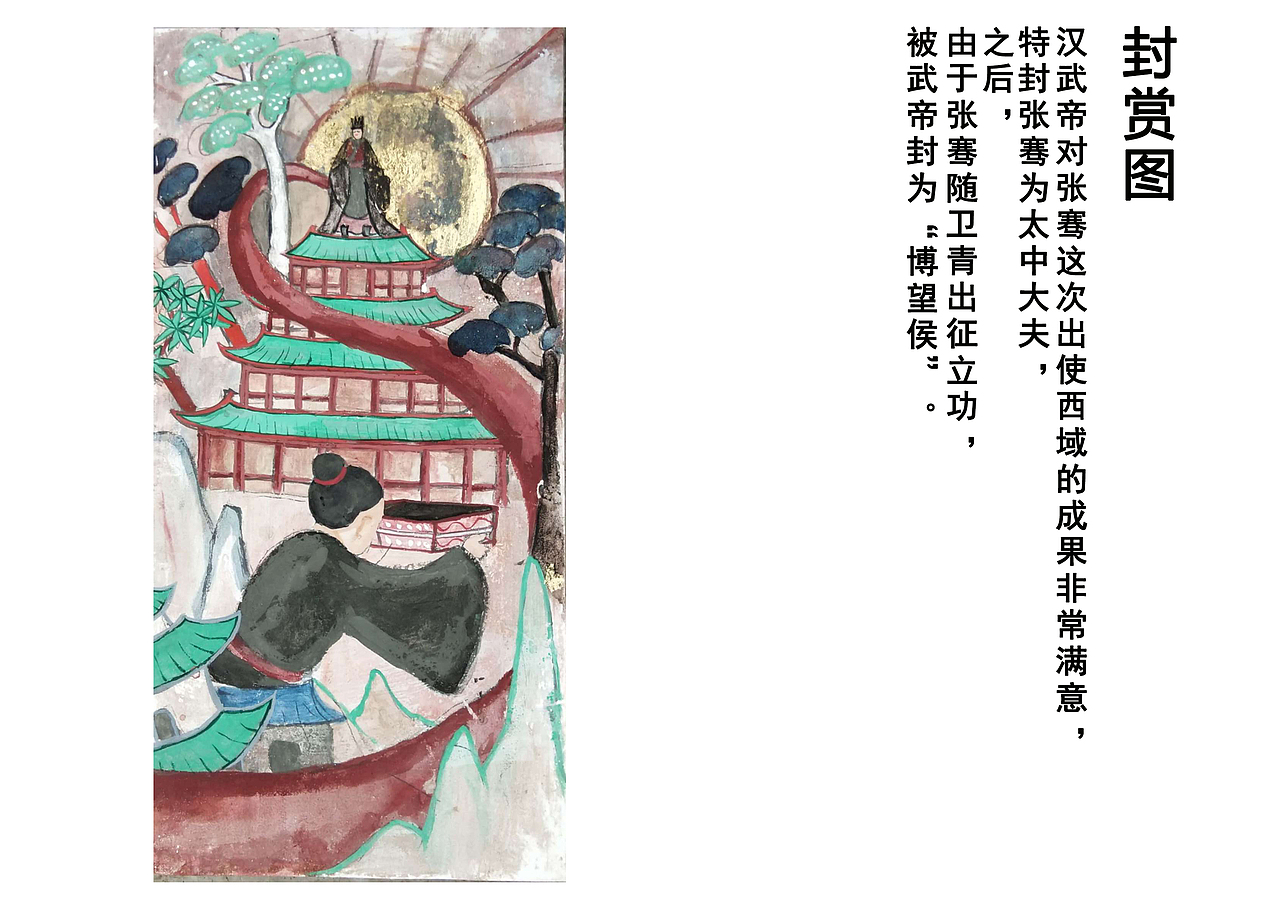 封赏图
汉武帝对张骞这次出使西域的成果非常满意，
特封张骞为太中大夫，
之后，
由于张骞随卫青出征立功，
被武帝封为“博望侯”。